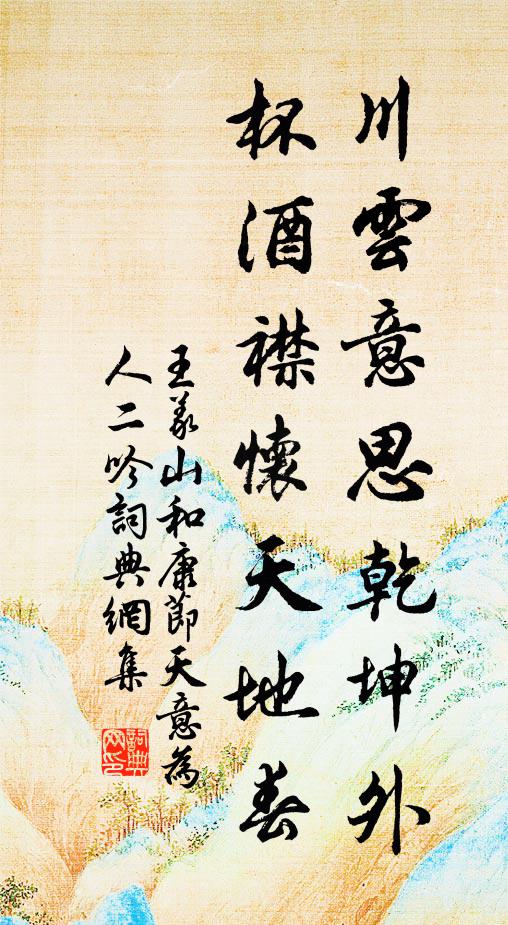 川雲意思乾坤外
杯酒襟懷天地春
王義山和康節天意為
人二吟詞典網集
詞典網印